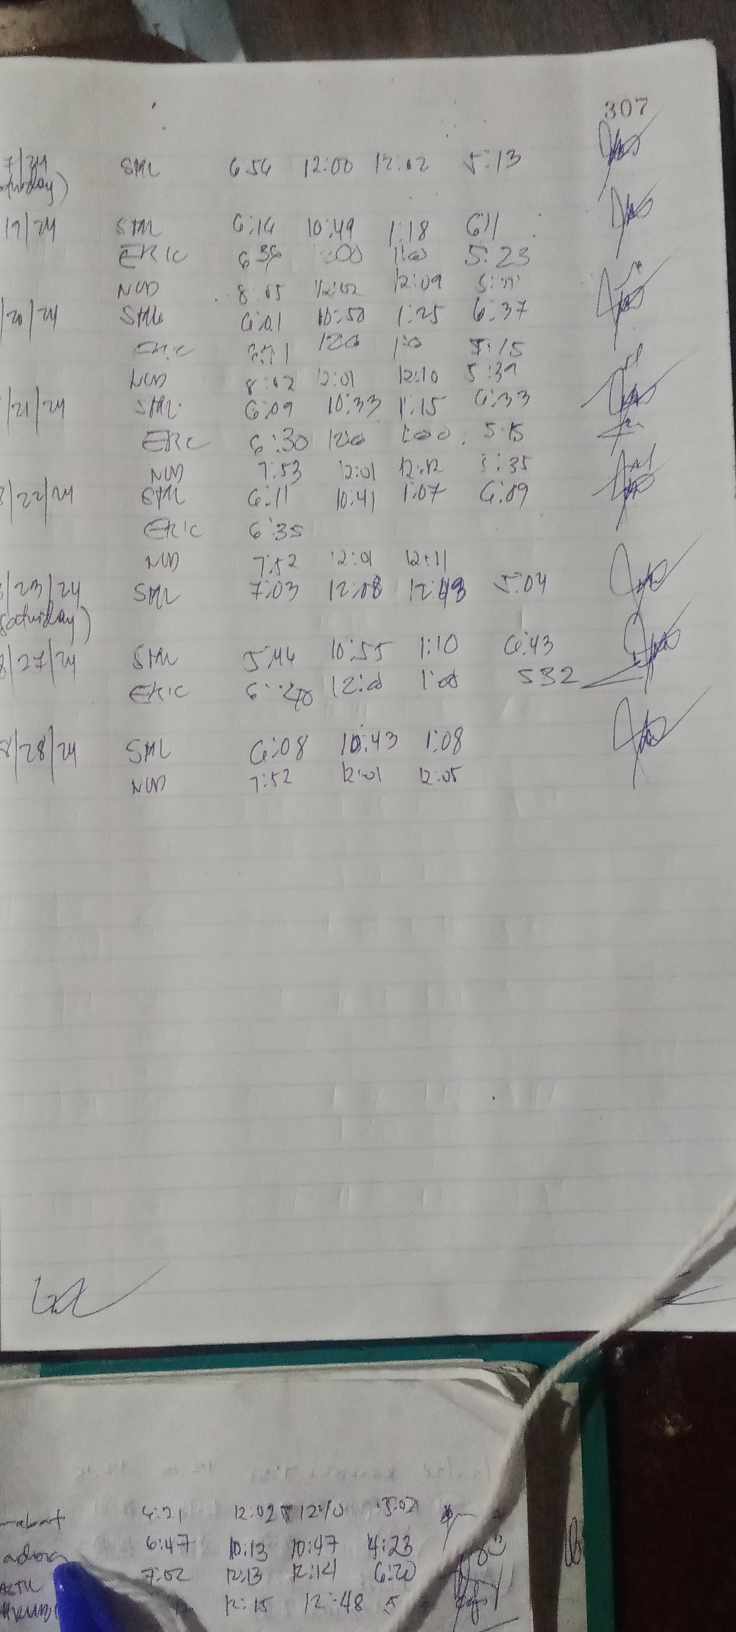 307
7/24 SML 6:56 12:00 12:02 5:13
aturday)
19/24 SML 6:16 10:49 1:18 6:11
ERIC 6:36 :00 1:00 5:23
NUD 8:05 12:02 12:09
/20/24 SML 6:01 10:50 1:25 6:37
ERIC 1200 1:00 5:15
NUD 8:02 12:01 12:10 5:39
/21/24 SML 6:09 10:33 1:15 6:33
ERIC 6:30 1200 1:00 5:15
NUD 7:53 12:01 12:12 5:35
8/22/24 SML 6:11 10:41 1:07 6:09
ERIC 6:35
NUD 7:52 12:01 12:11
8/23/24 SML 7:03 12:08 12:49 5:04
Saturday)
8/27/24 SML 5:46 10:55 1:10 6:43
ERIC 6:40 12:00 1:00 532
8/28/24 SML 6:08 10:43 1:08
NUD 7:52 12:01 12:05
6:21 12:02 12:10 5:02
6:47 10:13 10:47 4:23
7:02 12:13 12:14 6:20
12:15 12:48 5